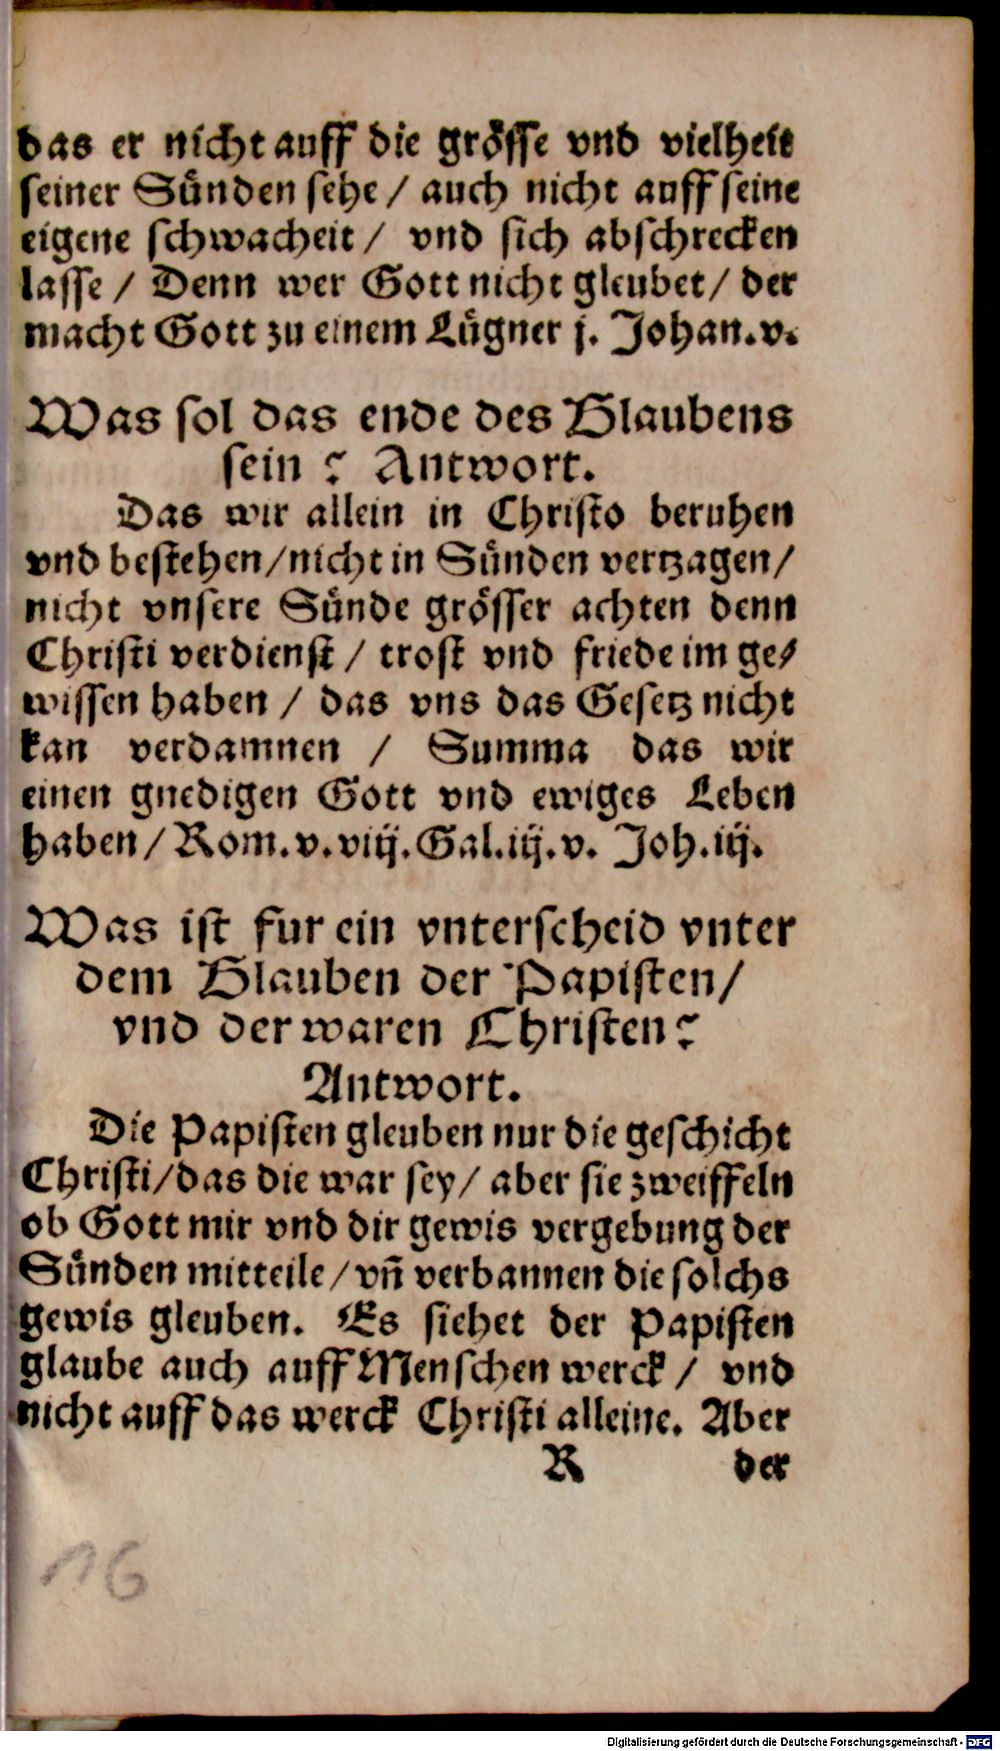 das er nicht auff die grösse vnd vielheit
seiner Sünden sehe / auch nicht auff seine
eigene schwacheit / vnd sich abschrecken
lasse / Denn wer Gott nicht gleubet / der
macht Gott zu einem Lügner j. Johan. v.
Was sol das ende des Glaubens
sein ? Antwort.
Das wir allein in Christo beruhen
vnd bestehen / nicht in Sünden vertzagen /
nicht vnsere Sünde grösser achten denn
Christi verdienst / trost vnd friede im ge⸗
wissen haben / das vns das Gesetz nicht
kan verdamnen / Summa das wir
einen gnedigen Gott vnd ewiges Leben
haben / Rom. v. viij. Gal. iij. v. Joh. iij.
Was ist fur ein vnterscheid vnter
dem Glauben der Papisten /
vnd der waren Christen ?
Antwort.
Die Papisten gleuben nur die geschicht
Christi / das die war sey / aber sie zweiffeln
ob Gott mir vnd dir gewis vergebung der
Sünden mitteile / vñ verbannen die solchs
gewis gleuben. Es siehet der Papisten
glaube auch auff Menschen werck / vnd
nicht auff das werck Christi alleine. Aber
R der
16
Digitalisierung gefördert durch die Deutsche Forschungsgemeinschaft - DFG